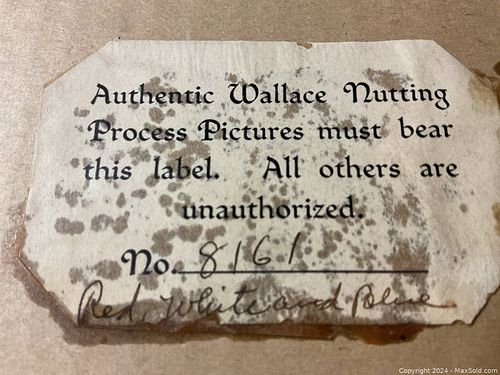 Authentic Wallace Nutting
Process Pictures must bear
this label. All others are
unauthorized.
No. 8161
Red, White and Blue
Copyright 2024 - MaxSold.com